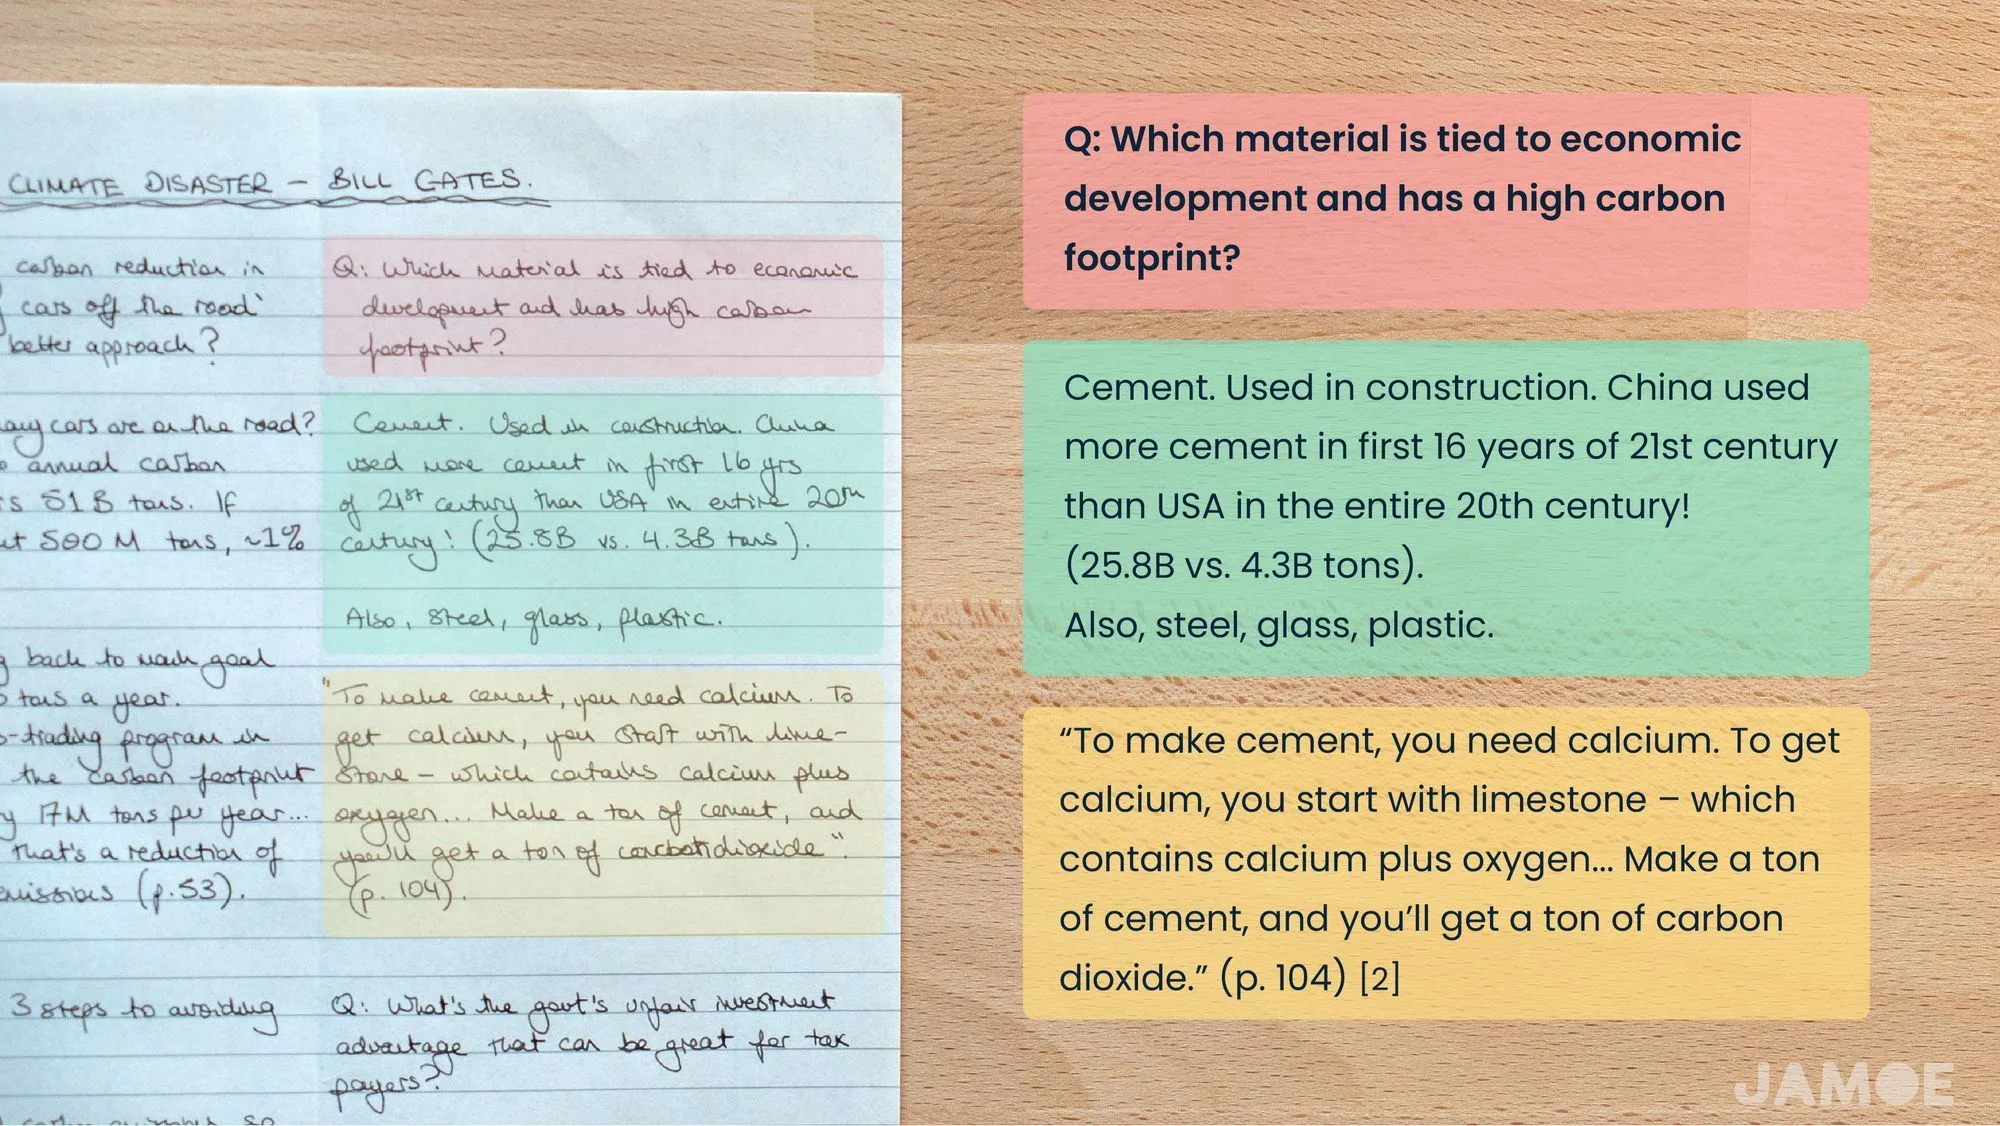 CLIMATE DISASTER – BILL GATES.
carbon reduction in
cars off the road'
better approach?
any cars are on the road?
annual carbon
is 51 B tons. If
500 M tons, ~1%
back to each goal
tons a year.
-trading program in
the carbon footprint
y 17M tons per year...
That's a reduction of
missions (p.53).
3 steps to avoiding
Q: Which material is tied to economic
development and has high carbon
footprint?
Cement. Used in construction. China
used more cement in first 16 yrs
of 21st century than USA in entire 20th
century! (25.8B vs. 4.3B tons).
Also, steel, glass, plastic.
"To make cement, you need calcium. To
get calcium, you start with lime-
stone – which contains calcium plus
oxygen... Make a ton of cement, and
you'll get a ton of dioxide".
(p. 104).
Q: What's the govt's unfair investment
advantage that can be great for tax
payers?
Q: Which material is tied to economic
development and has a high carbon
footprint?
Cement. Used in construction. China used
more cement in first 16 years of 21st century
than USA in the entire 20th century!
(25.8B vs. 4.3B tons).
Also, steel, glass, plastic.
“To make cement, you need calcium. To get
calcium, you start with limestone – which
contains calcium plus oxygen... Make a ton
of cement, and you’ll get a ton of carbon
dioxide.” (p. 104) [2]
JAMOE